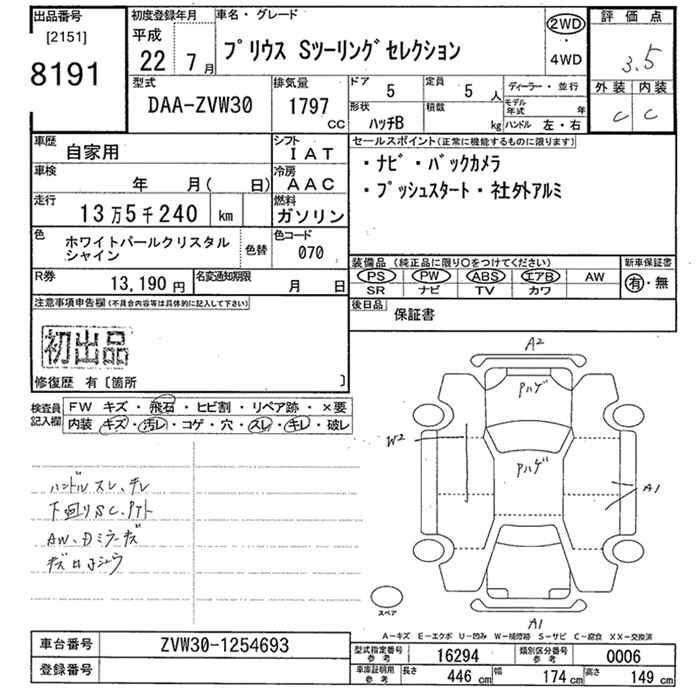 出品番号 初度登録年月 車名・グレード 2WD 評価点
[2151] 平成 ・ 3.5
8191 22 7月 プリウス Sツーリングセレクション 4WD
型式 排気量 ドア 定員 ディーラー・並行 外装 内装
DAA-ZVW30 1797 CC 5 5人 モデル年式 年 C C
形状 積載
ハッチB kg ハンドル 左・右
車歴 自家用 シフト IAT セールスポイント(正常に機能するものに限ります)
車検 年 月( 日) 冷房 AAC ・ナビ・バックカメラ
走行 13万5千240 km 燃料 ガソリン ・プッシュスタート・社外アルミ
色 ホワイトパールクリスタル 色替 色コード
シャイン 070
装備品(純正品に限り○をつけてください) 新車保証書
PS PW ABS エアB AW 有・無
SR ナビ TV カワ
R券 13,190円 名変通知期限 月 日
後日品 保証書
注意事項申告欄(不具合内容等は具体的に記入して下さい)
初出品
修復歴 有〔箇所 〕
検査員記入欄 FW キズ・飛石・ヒビ割・リペア跡・×要
内装 キズ・汚レ・コゲ・穴・スレ・キレ・破レ
ハンドルスレ、チレ
下回りSC、PTト
AW、Dミラーキズ
A2
Pハゲ
W2
Pハゲ
A1
スペア
A1
A-キズ E-エクボ U-凹み W-補修跡 S-サビ C-腐食 XX-交換済
車台番号 ZVW30-1254693
登録番号
型式指定番号 参考 16294 類別区分番号 参考 0006
車庫証明用 参考 長さ 446 cm 幅 174 cm 高さ 149 cm